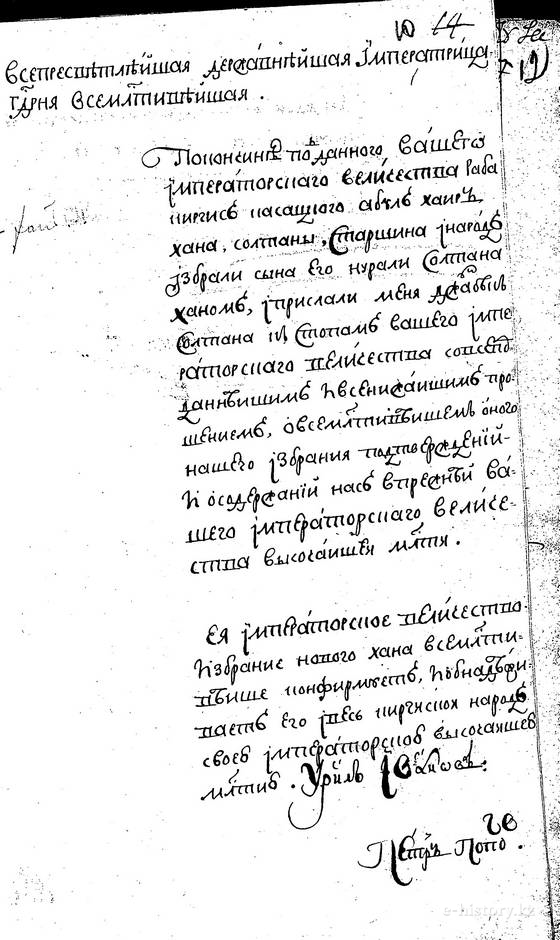 10 14
12
всепресвѣтлѣйшая державнѣйшая імператрица
гдрня всемлтивѣйшая .
По кончинѣ подданного вашего
імператорскаго величества раба
киргисъ касацкого абулъ хаиръ
хана, солтаны, старшина інародъ
ізбрали сына его нурали солтана
ханомъ, іприслали меня
солтана къ стопамъ вашего імпе
раторскаго величества совсепод
даннѣйшимъ ивсенижайшимъ про
шениемъ, овсемлтивѣйшемъ оного
нашего ізбрания подтвержденій
и осодержаній насъ впрежней ва
шего імператорскаго величе
ства высочайшея млти .
Ея імператорское величество
избрание нового хана всемлти
вѣише конфирмуетъ, иобнадежи
ваетъ его івесь киргиской народъ
своею імператорскою высочаишею
млтию . Уриль Іванов .
Петръ Попо .
e-history.kz